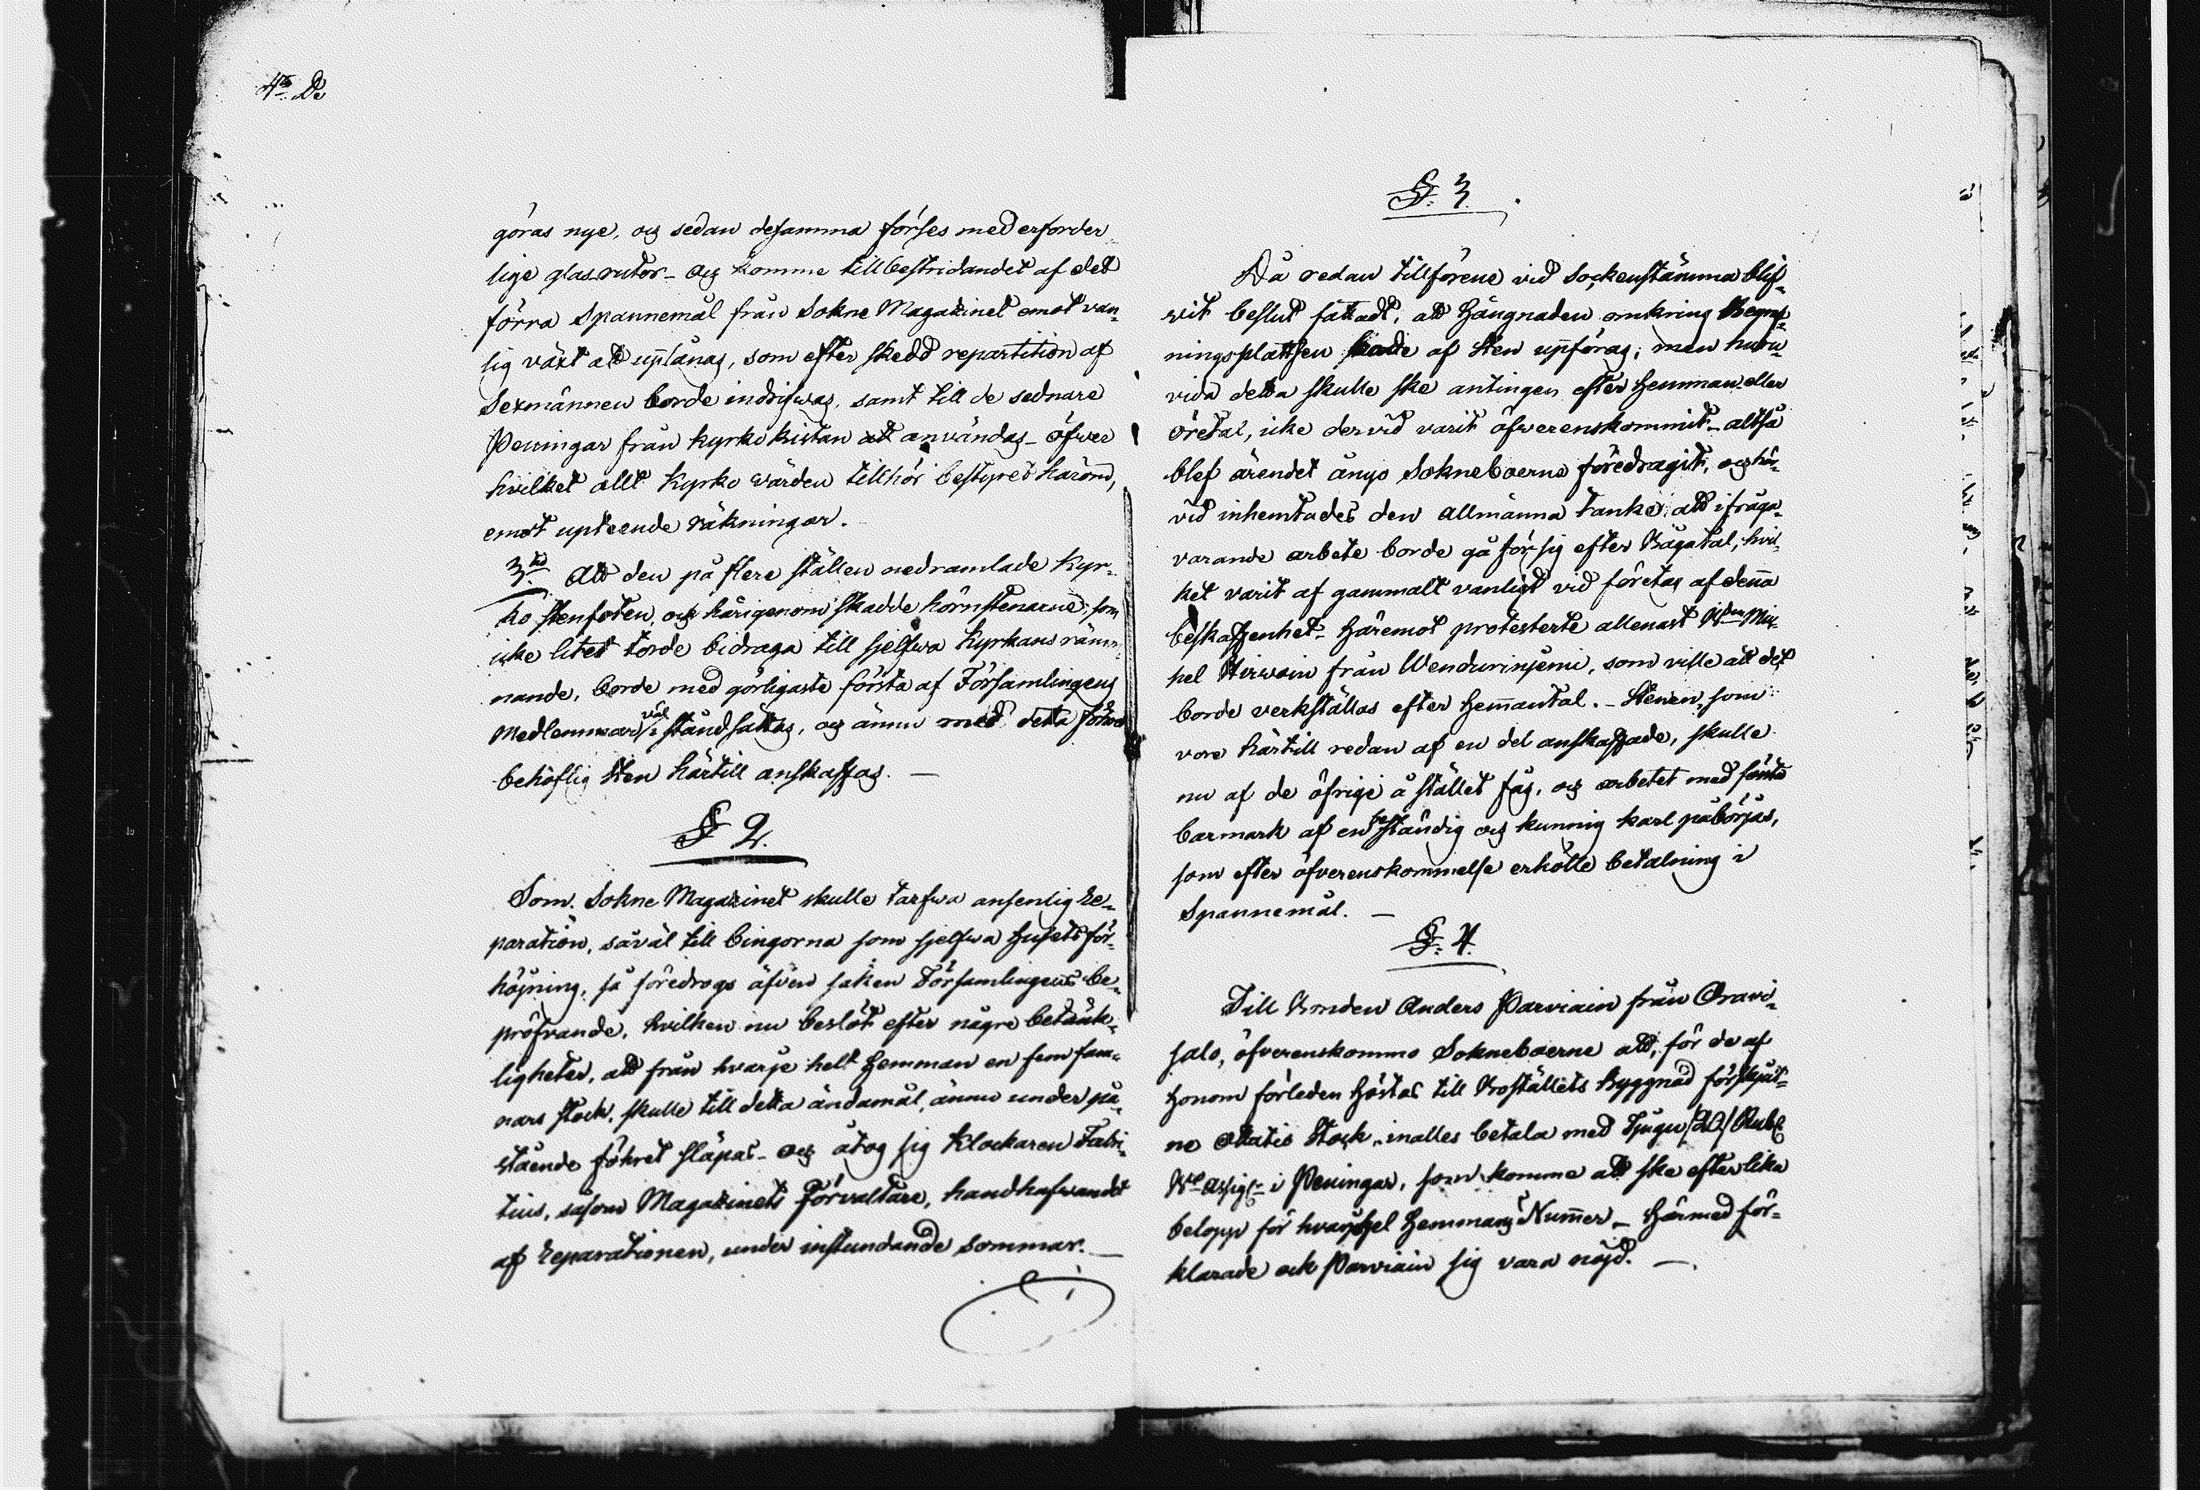 4to De
göras nye, och sedan desamma förses med erforder
lige glasrutor_ och komme till bestridandet af det
förra Spannemål från Sokne Magazinet emot van-
lig växt att uplånas, som efter skedd repartition af
Sexmännen borde indrifwas, samt till de sednare
Penningar från kyrko kistan att användas_ öfwer
hvilket allt Kyrko wärden tillhör bestyret härom,
emot upteende räkningar.
3to Att den på flere ställen nedramlade Kyr-
ko stenfoten, och härigenom skadde hörnstenarne, som
icke litet torde bidraga till sjelfwa Kyrkans räm-
nande, borde med görligaste första af Församlingens
Medlemmar väl i ståndsättas, och ännu med detta
behöflig Sten härtill anskaffas. —
§ 2.
Som Sokne Magazinet skulle tarfwa ansenlig re-
paration, såväl till bingorna som sjelfwa husets för-
höjning, så föredrogs äfven saken Församlingens be-
pröfvande, hvilken nu beslöt efter någre betänk-
ligheter, att från hvarje helt Hemman en fem fam-
nars stock, skulle till detta ändamål, ännu under på-
stående föhret släpas_ och åtog sig Klockaren Fabri-
tius, såsom Magazinets Förvaltare, handhafwandet
af reparationen, under instundande sommar. —
§. 3.
Då redan tillförene vid Sockenstämma blif-
wit beslut fattadt, att hängnaden omkring Begraf-
ningsplattsen borde af Sten upföras; men huru-
vida detta skulle ske antingen efter Hemman eller
öretal, icke dervid varit öfwerenskommit_ altså
blef ärendet ånyo Sokneboerne föredragit, och här-
vid inhemtades den allmänna tanke; att ifråga-
varande arbete borde gå för sig efter Bågatal, hvil-
ket varit af gammalt vanligt vid företag af denna
beskaffenhet_ Häremot protesterte allenast Bden Mic-
hel Hirvoin från Wendurinjemi, som ville att det
borde verkställas efter Hemmantal. - Stenen, som
vore härtill redan af en del anskaffade, skulle
nu af de öfrige å stället fås, och arbetet med första
barmark af en beständig och kunnig karl påbörjas,
som efter öfverenskommelse erhölle betalning i
Spannemål. —
§. 4.
Till Bonden Anders Parviain från Oravi-
salo, öfverenskommo Sokneboerne att, för de af
honom förleden Höstas till Boställets byggnad förskjut-
ne Stock, inalles betala med Tjugu /20/ Rub
Bco Assign i Penningar, som komme att ske efter lika
belopp för hvarje hel Hemmans Nummer_ Härmed för-
klarade ock Parviain sig vara nöjd. —